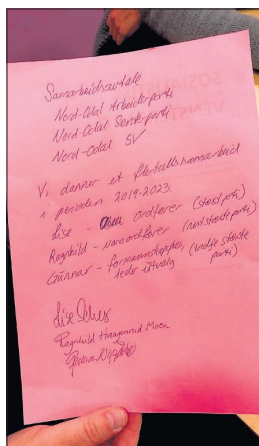 Samarbeidsavtale
Nord-Odal Arbeiderparti
Nord Odal Senterparti
Nord-Odal SV
Vi danner et flertallssamarbeid
i perioden 2019-2023.
Lise - Ordfører (størst parti)
Ragnhild - varaordfører (nest største parti)
Gunnar - formannskapsplass, (tredje største
leder utvalg parti)
Lise Selnes
Ragnhild Haagenrud Moen